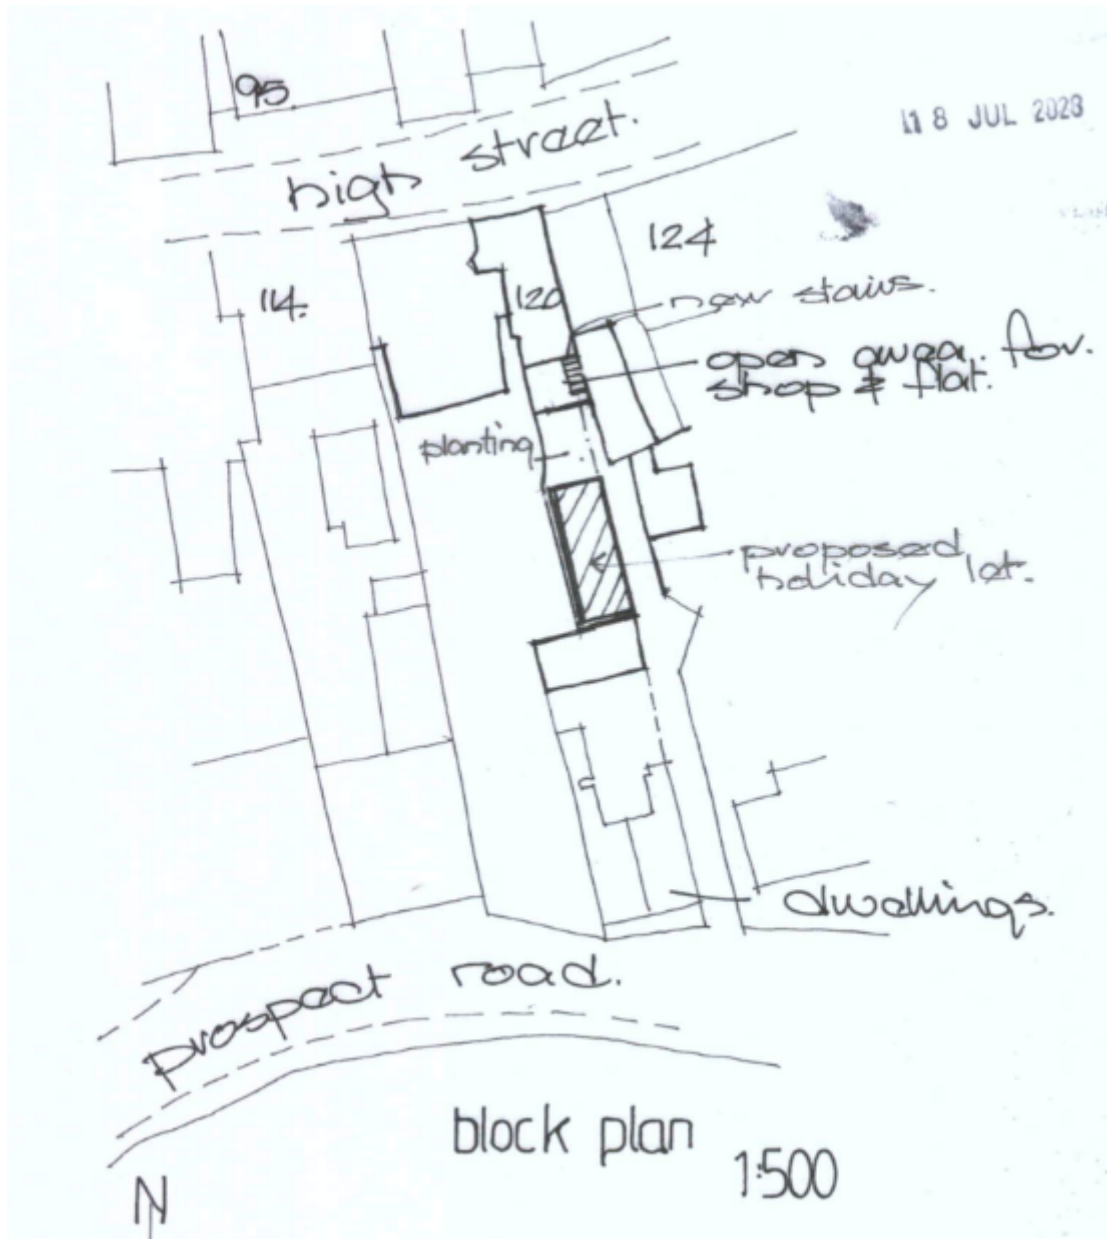 95.
high street.
18 JUL 2023
124
114.
120
new stairs.
open area. for.
shop & flat.
planting
proposed
holiday let.
dwellings.
prospect road.
block plan
1:500
N